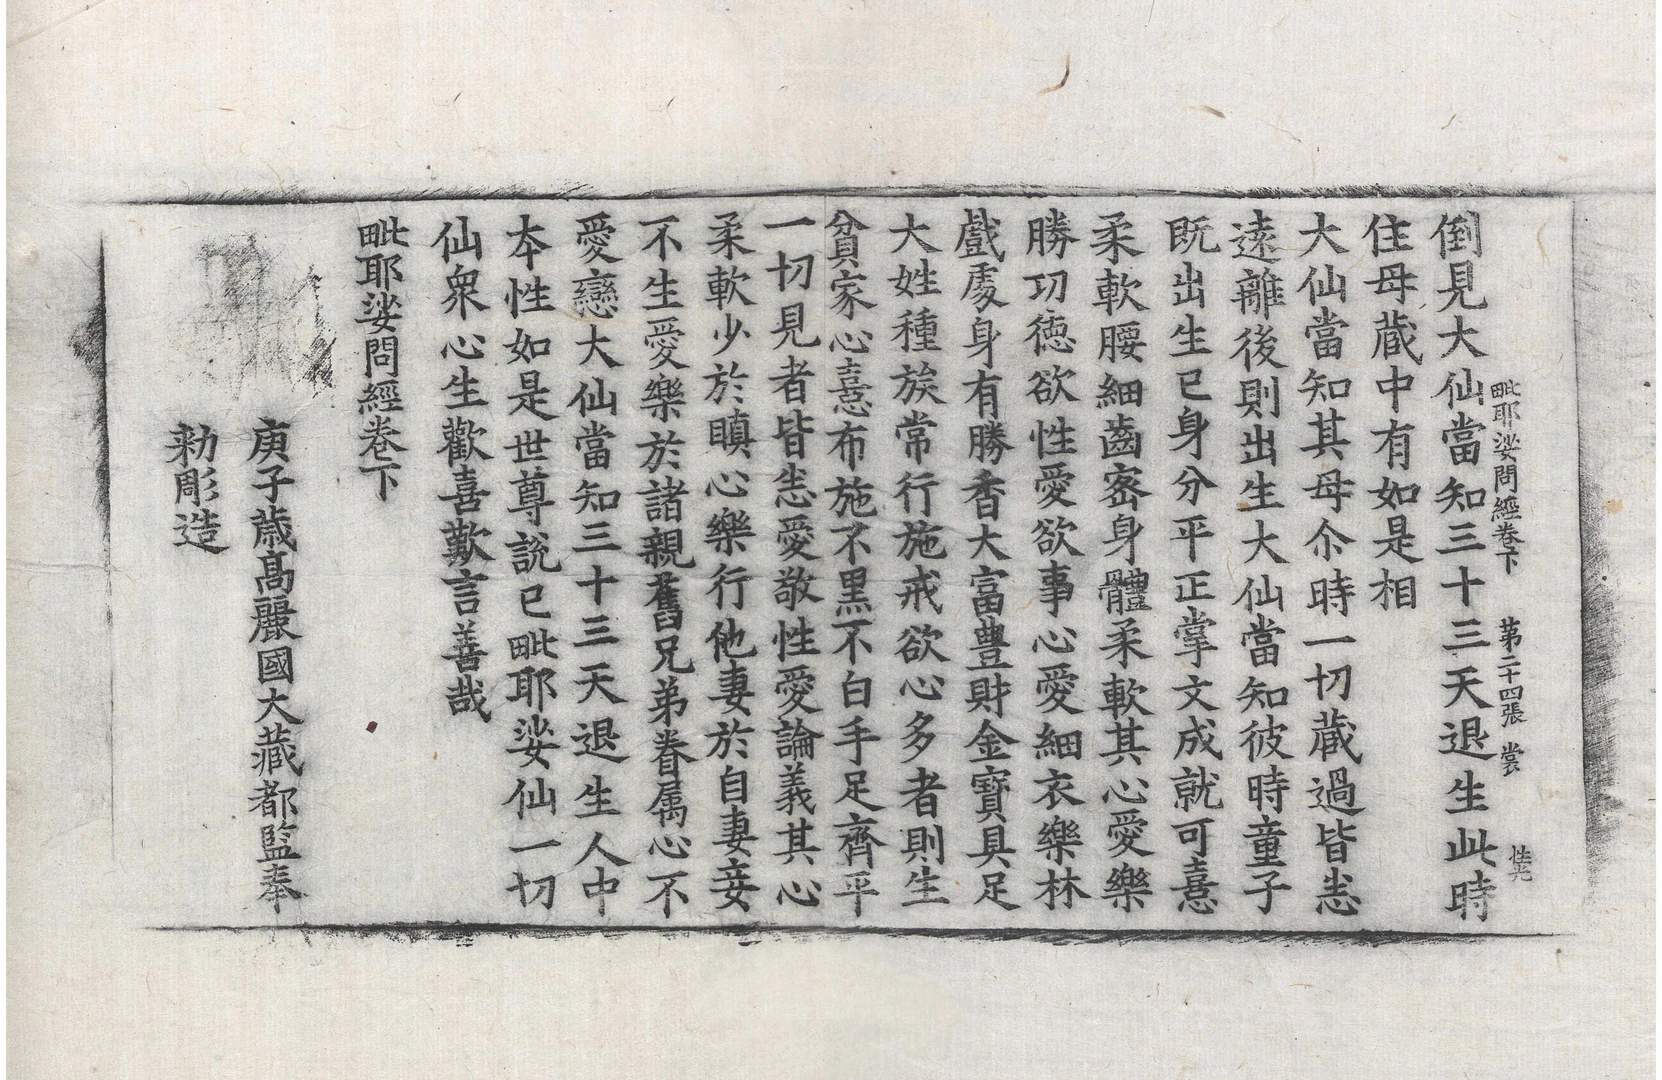 毗耶娑問經卷下　第二十四張　裳
倒見大仙當知三十三天退生此時
住母蔵中有如是相
大仙當知其母尒時一切蔵過皆悉
遠離後則出生大仙當知彼時童子
既出生已身分平正掌文成就可憙
柔軟腰細齒密身體柔軟其心愛樂
勝功徳欲性愛欲事心愛細衣樂林
戲䖏身有勝香大富豊財金寶具足
大姓種族常行施戒欲心多者則生
貧家心憙布施不黒不白手足齊平
一切見者皆悉愛敬性愛論義其心
柔軟少於瞋心樂行他妻於自妻妾
不生愛樂於諸親舊兄弟眷属心不
愛戀大仙當知三十三天退生人中
夲性如是世尊說已毗耶娑仙一切
仙衆心生歡喜歎言善哉
毗耶娑問經卷下
庚子歳高麗國大藏都監奉
勑彫造